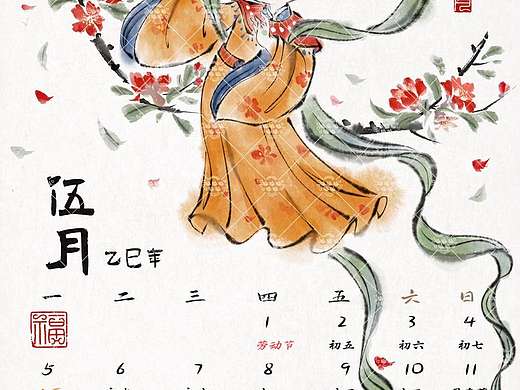 伍月
乙巳年
一 二 三 四 五 六 日
1 2 3 4
劳动节 初五 初六 初七
福
5 6 7 8 9 10 11